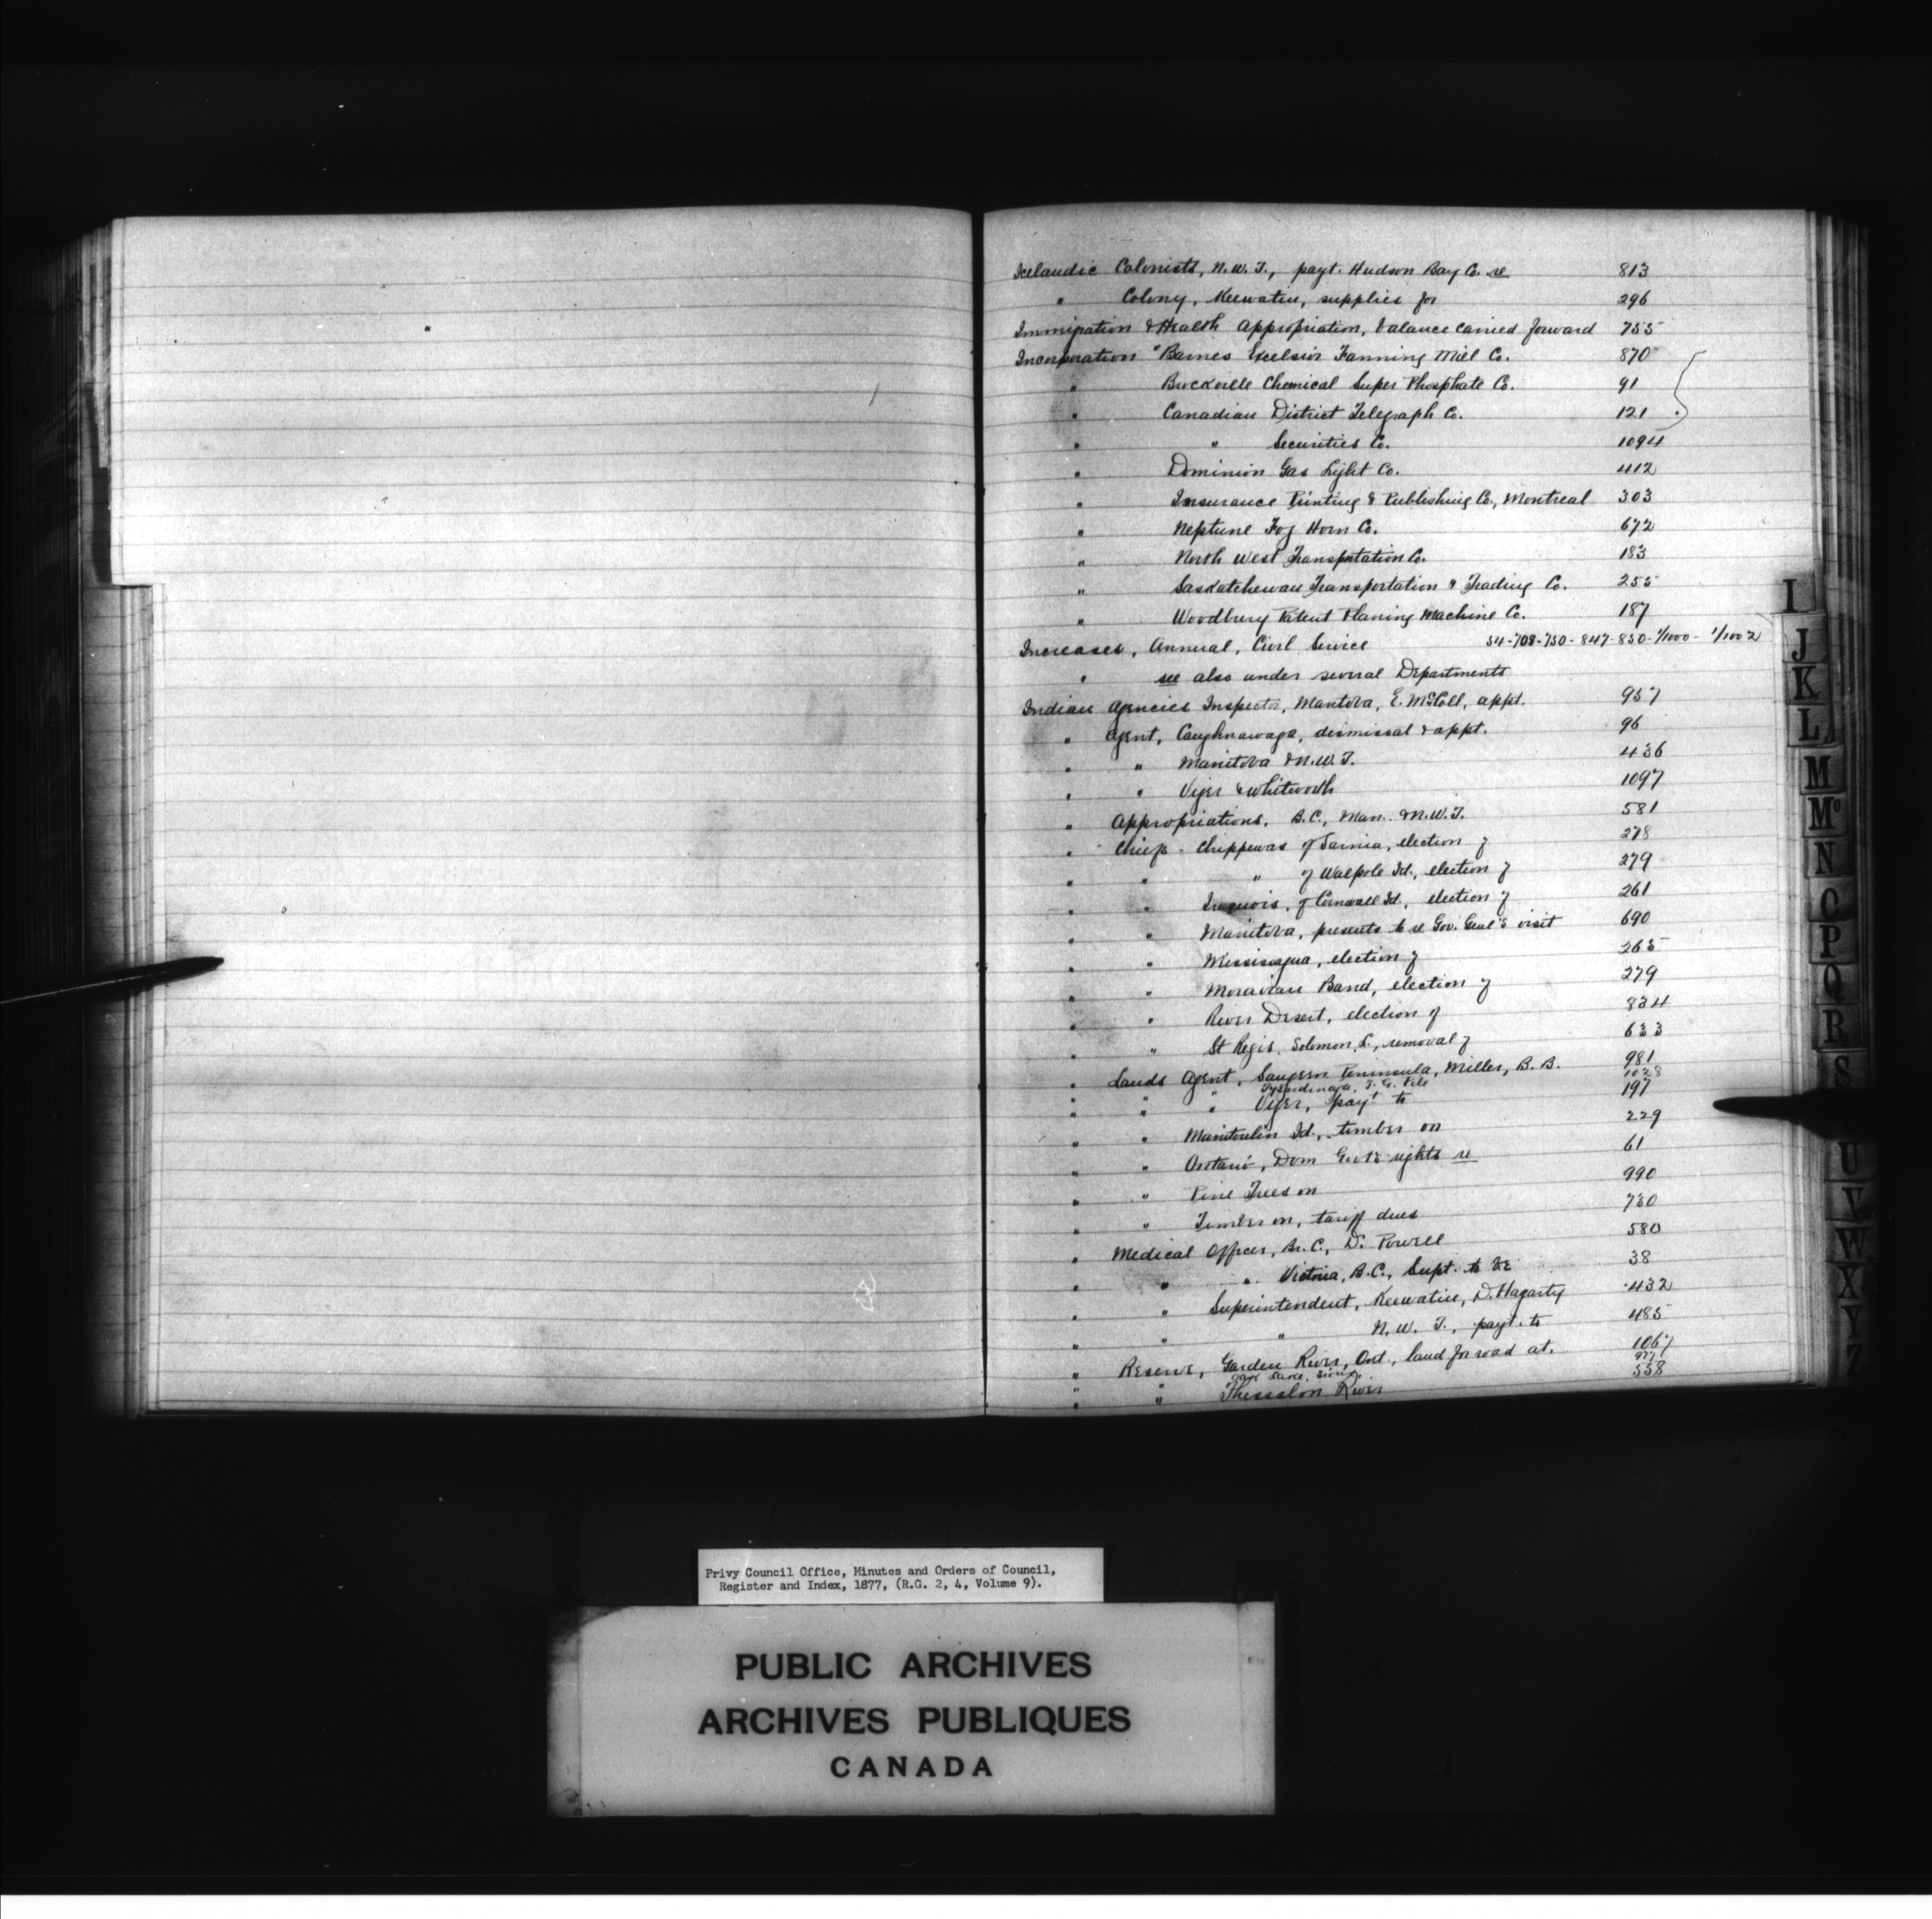 Icelandic Colonists, N.W.T., payt. Hudson Bay Co. re 813
" Colony, Keewatin, supplies for 296
Immigration & Health Appropriation, balance carried forward 755
Incorporation "Barnes Excelsior Fanning Mill Co. 870
" Brockville Chemical Super Phosphate Co. 91
" Canadian District Telegraph Co. 121
" " Securities Co. 1094
" Dominion Gas Light Co. 412
" Insurance Printing & Publishing Co., Montreal 303
" Neptune Fog Horn Co. 672
" North West Transportation Co. 183
" Saskatchewan Transportation & Trading Co. 255
" Woodbury Patent Planing Machine Co. 187
Increases, Annual, Civil Service 54-708-750-847-850-1/1000-1/1002
" see also under several Departments
Indian Agencies Inspector, Manitoba, E. McColl, appt. 957
" Agent, Caughnawaga, dismissal & appt. 96
" " Manitoba & N.W.T. 436
" " Viger & Whitworth 1097
" Appropriations, B.C., Man. & N.W.T. 581
" Chiefs - Chippewas of Sarnia, election of 278
" " " of Walpole Id., election of 279
" " Iroquois, of Cornwall Id., election of 261
" " Manitoba, presents to re Gov. Genl's visit 690
" " Mississagua, election of 265
" " Moravian Band, election of 279
" " River Desert, election of 834
" " St Regis, Solomon, L., removal of 633
" Lands Agent, Saugeen Peninsula, Miller, B. B. 981
" " " Tyendinaga, T. G. 1028
" " " Viger, payt to 197
" " Manitoulin Id., timber on 229
" " Ontario, Dom Govt's rights re 61
" " Pine Trees on 990
" " Timber on, tariff dues 730
" Medical Officer, Br. C., Dr. Powell 580
" " " Victoria, B.C., Supt. to be 38
" " Superintendent, Keewatin, D. Hagarty 432
" " " N.W.T., payt. to 485
" Reserve, Garden River, Ont., land for road at. 1067
" " Oak Lake, Sioux. 977
" " Thessalon River 558
I
J
K
L
M
Mc
N
O
P
Q
R
S
U
V
W
X
Y
Z
Privy Council Office, Minutes and Orders of Council,
Register and Index, 1877, (R.G. 2, 4, Volume 9).
PUBLIC ARCHIVES
ARCHIVES PUBLIQUES
CANADA